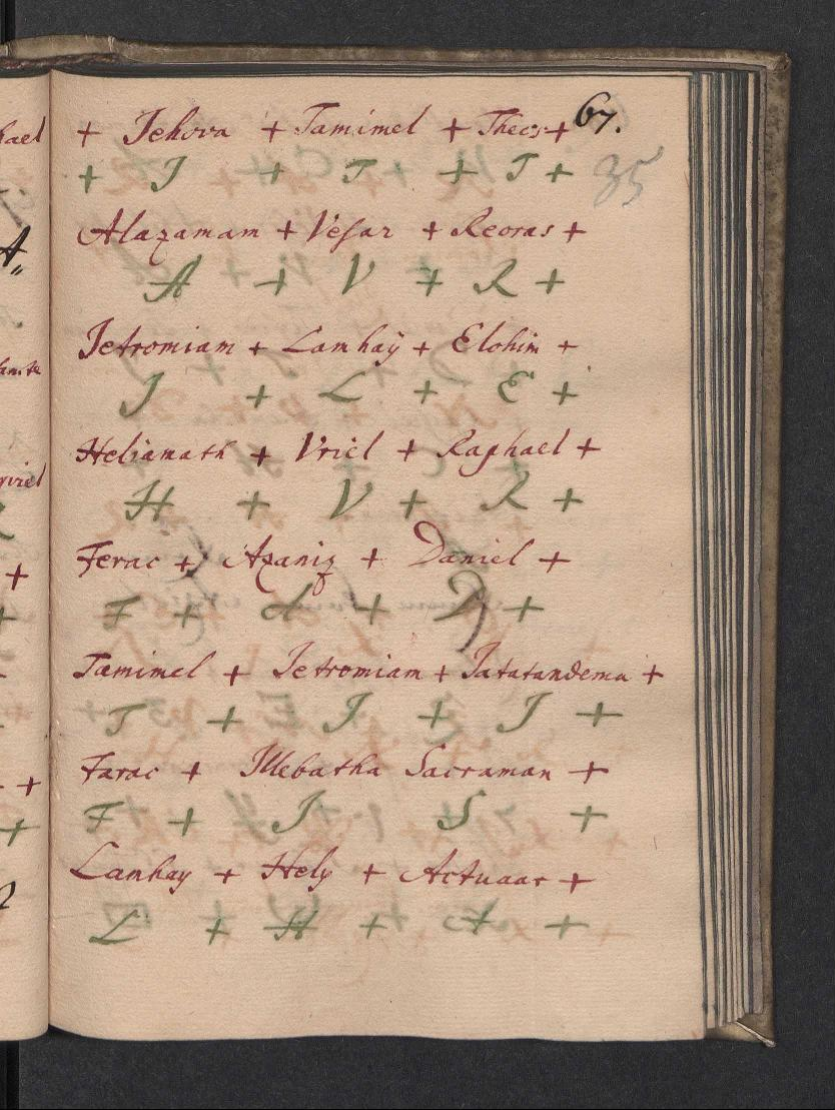 hael
+ Jehova + Tamimel + Theos + 67.
+ J + T + T + 35
Alazamam + Vesar + Reoras +
A + V + R +
Jetromiam + Lamhaÿ + Elohim +
J + L + E +
Helianath + Vriel + Raphael +
H + V + R +
Ferac + Azaniz + Daniel +
F + A + D +
Tamimel + Jetromiam + Jatatandema +
T + J + J +
Farac + Illebatha Sacraman +
F + J + S +
Lamhay + Hely + Actuaar +
L + H + A +